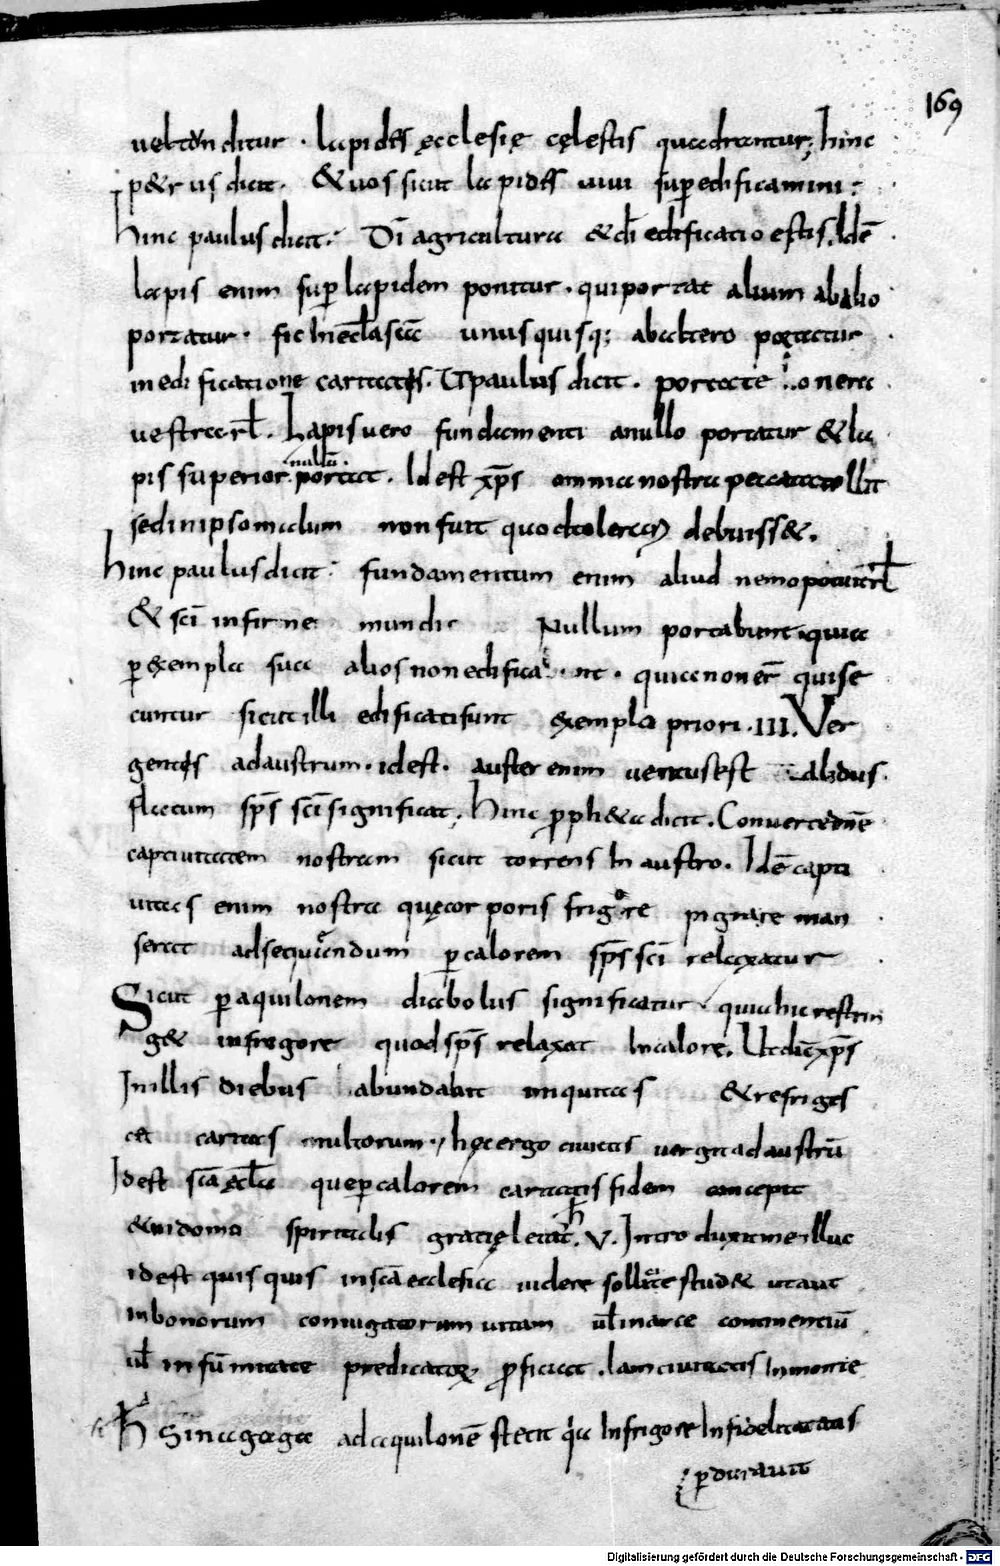 169
uel tonditur . lapides ęcclesię cęlestis quadrantur; hinc
p&rus dicit . & uos sicut lapides uiui sup̄edificamini :
hinc paulus dicit : Dī agricultura & dī edificatio estis. Idē
lapis enim sup̄ lapidem ponitur . qui portat alium ab alio
portatur . sic in ecl̄a scā unusquisq; ab altero portatur
in edificatione caritatis . Ut paulus dicit . portate onera
uestra rl̄ . Lapis uero fundamenti a nullo portatur & la
pis superior nullū portat . Id est xp̄s omnia nostra peccata tollit
sed in ipso malum non fuit quod tolerari debuiss& .
hinc paulus dicit : fundamentum enim aliud nemo potuit rl̄
& scī in fine mundi Nullum portabunt . quia
p̄ exempla sua alios non edificant . quia non er̄ qui se
cuntur sicut illi edificati sunt exempla priori . III . Ver
gentis ad austrum . id est . auster enim uentus est calidus .
flatum sp̄s scī significat . hinc p̄ph&a dicit . Conuerte dn̄e
captiuitatem nostram sicut torrens in austro . Idē capti
uitas enim nostra quę corporis frigore pigra re man
serat ad sequendum p̄ calorem sp̄s scī relaxatur
Sicut p̄ aquilonem diabolus significatur quia hic restrin
g& in frigore quod sp̄s relaxat in calore . Ut dic̄ xp̄s
In illis diebus abundabit iniquitas & refriges
c& caritas multorum . hęc ergo ciuitas uergit ad austrū
Id est scā ęcl̄a que p̄ calorem caritatis fidem concepit
& in dono spiritalis gratię letat̄ . V . Introduxit me illuc
id est quisquis in scā ecclesia uidere sollicite stud& ut aut
in bonorum coniugatorum uitam ul̄ in arce continentiū
ul̄ in sūmitate predicator̄ proficiat . Iam ciuitatis in monte
h̄ Sinagoga ad aquilonē stetit q̄a in frigore infidelitatis
p̄durauit
Digitalisierung gefördert durch die Deutsche Forschungsgemeinschaft - DFG